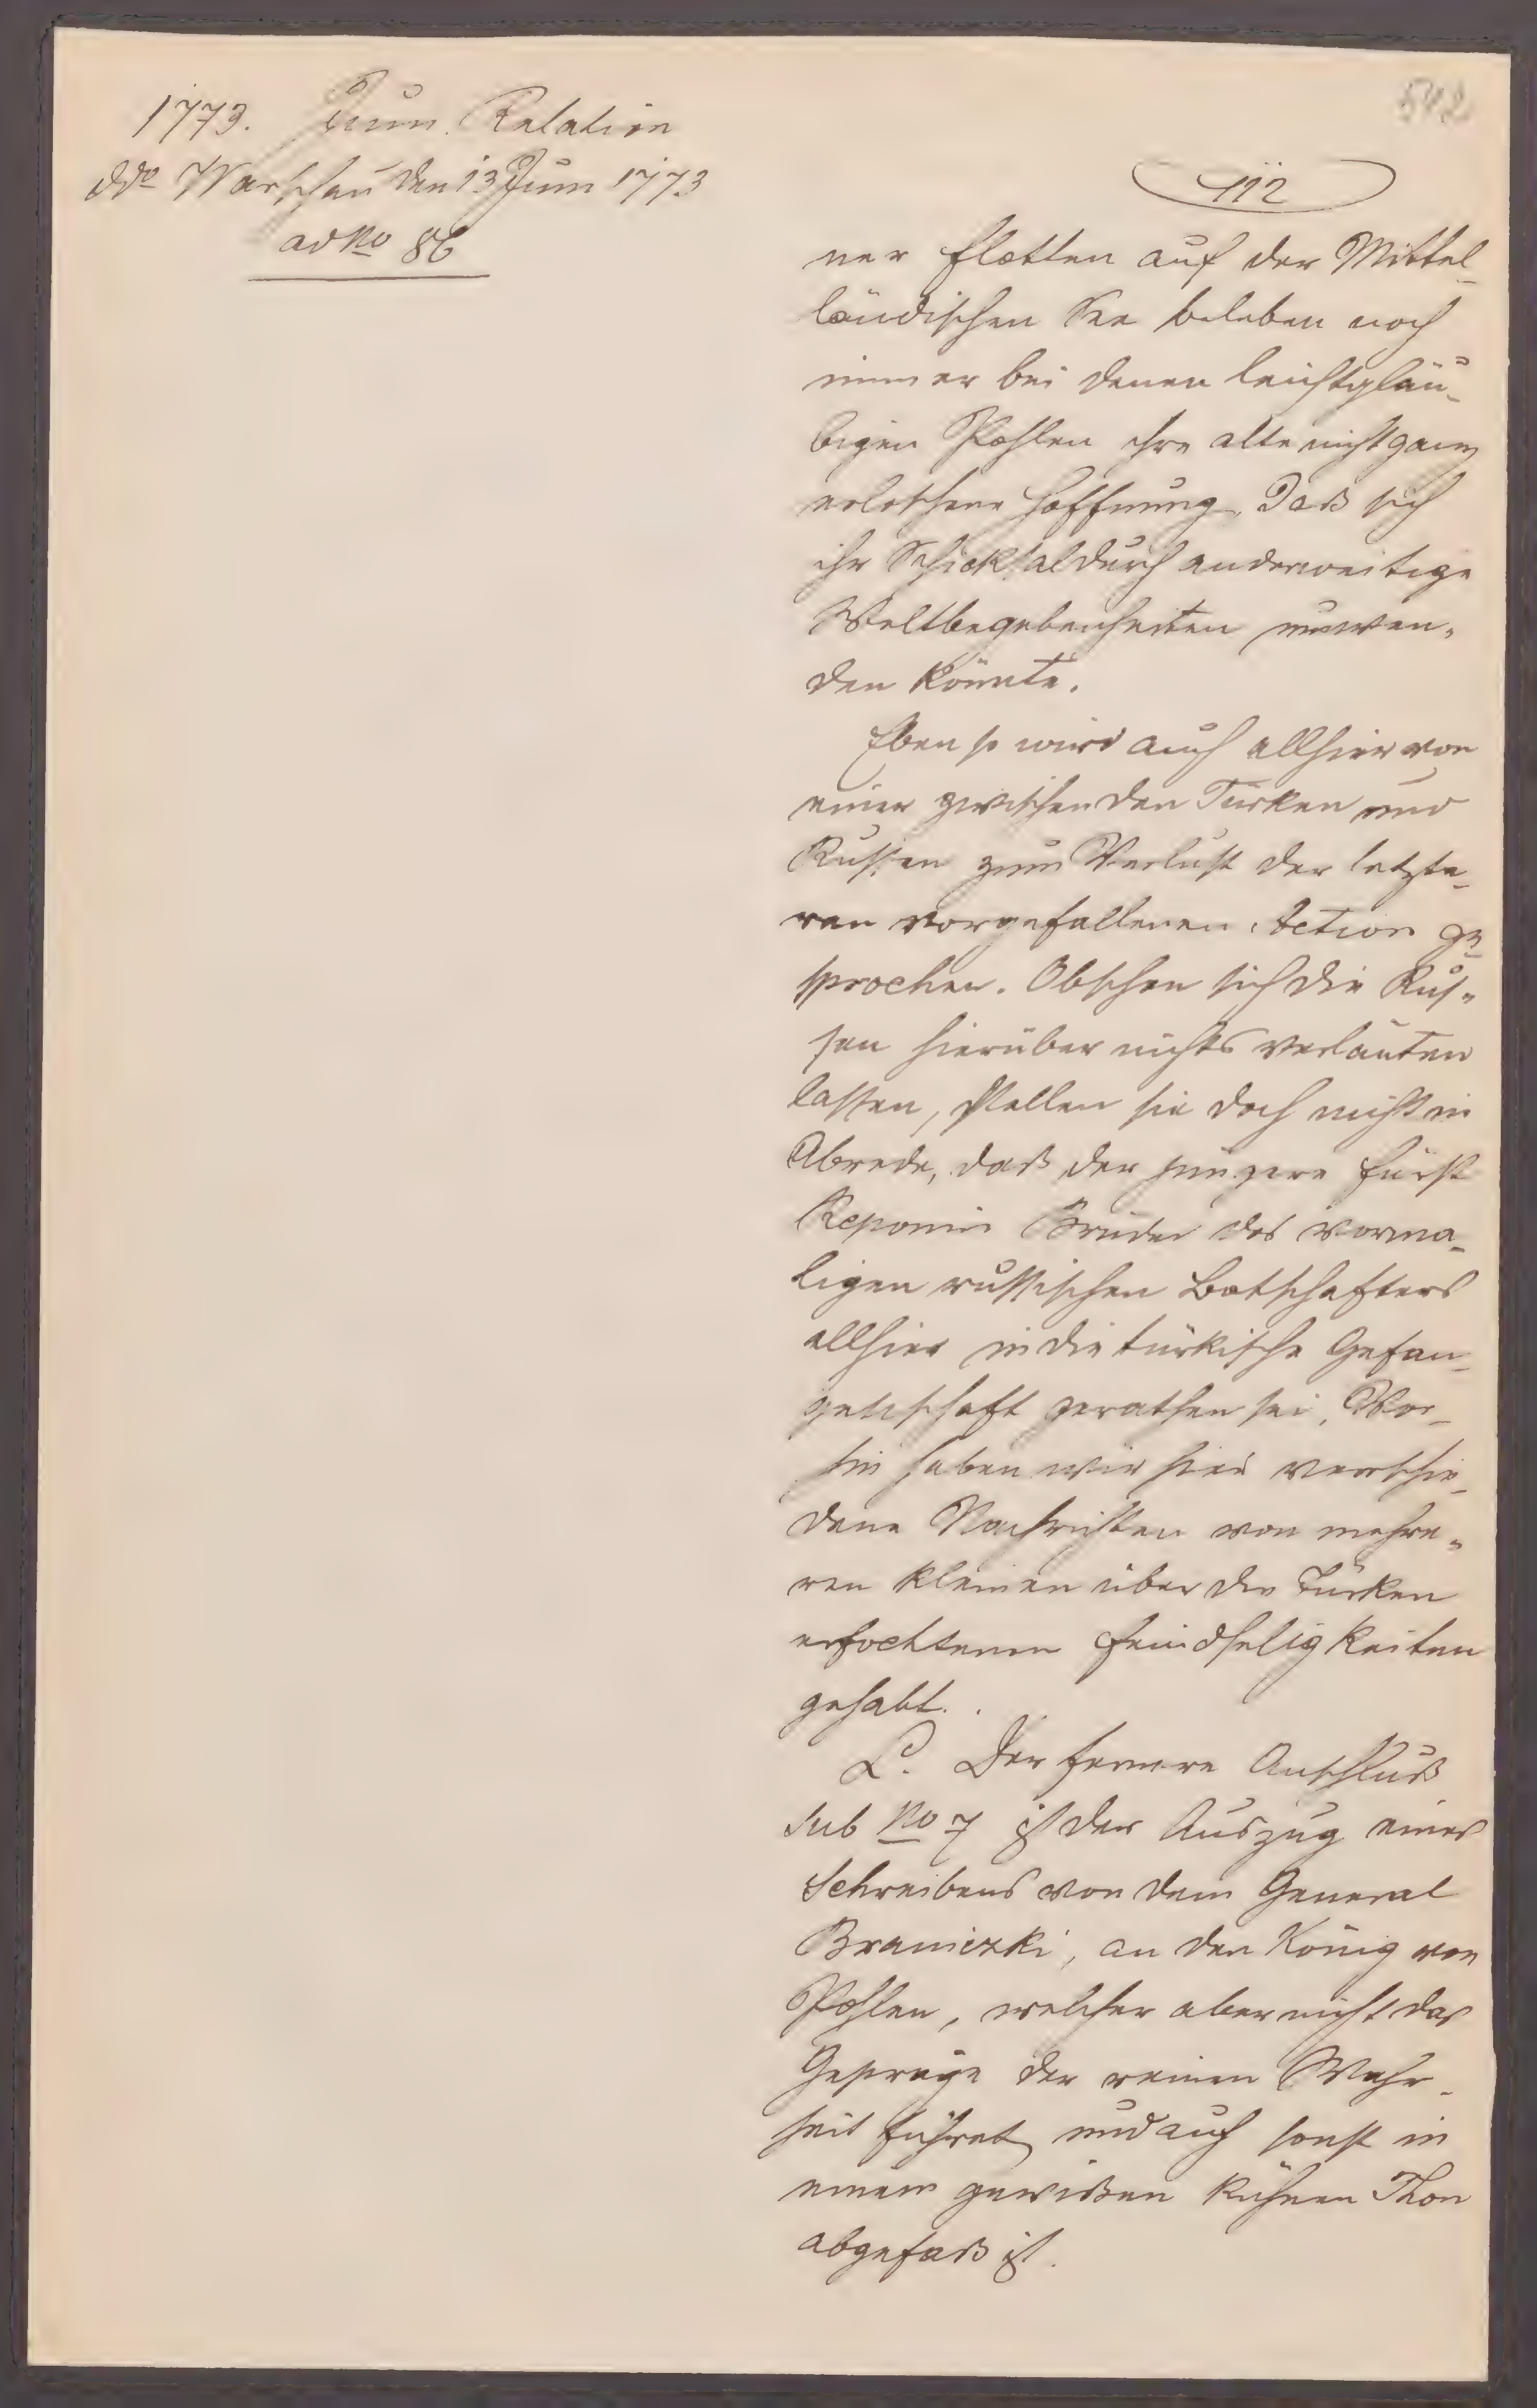 1773. Juni. Relation
ddo Warschau den 13 Juni 1773
ad No 86
542
112
ner Flotten auf der Mittel-
ländischen See beleben noch
immer bei denen leichtgläu-
bigen Pohlen ihre alte nicht ganz
erloschene Hoffnung, daß sich
ihr Schicksal durch anderweitige
Weltbegebenheiten umwen-
den könnte.
Eben so wird auch allhier von
einer zwischen den Türken und
Russen zum Verlust der letzte-
ren vorgefallenen Action ge-
sprochen. Obschon sich die Rus-
sen hierüber nichts verlauten
lassen, stellen sie doch nicht in
Abrede, daß der jüngere Fürst
Repnin Bruder des vorma-
ligen russischen Botschafters
allhier in die türkische Gefan-
genschaft gerathen sei. Vor-
hin haben wir hier verschie-
dene Nachrichten von mehre-
ren kleinen über die Türken
erfochtenen Feindseligkeiten
gehabt.
L. Der fernere Anschluß
sub No 7 ist der Auszug eines
Schreibens von dem General
Braniezki, an den König von
Pohlen, welcher aber nicht das
Gepräge der reinen Wahr-
heit führet und auch sonst in
einem gewißen kühnen Thon
abgefaß ist.